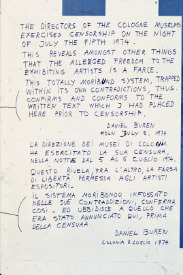 THE DIRECTORS OF THE COLOGNE MUSEUMS
EXERCISED CENSORSHIP ON THE NIGHT
OF JULY THE FIFTH 1974.
THIS REVEALS AMONGST OTHER THINGS
THAT THE ALLEGED FREEDOM TO THE
EXHIBITING ARTISTS IS A FARCE.
THIS TOTALLY MORIBOND SYSTEM, TRAPPED
WITHIN ITS OWN CONTRADICTIONS, THUS
CONFIRMS AND CONFORMS TO THE
WRITTEN TEXT WHICH I HAD PLACED
HERE PRIOR TO CENSORSHIP.
DANIEL BUREN
KÖLN JULY 6, 1974
LA DIREZIONE DEI MUSEI DI COLONIA
HA ESERCITATO LA SUA CENSURA,
NELLA NOTTE DAL 5 AL 6 LUGLIO 1974.
QUESTO RIVELA, TRA L'ALTRO, LA FARSA
DI LIBERTÀ PERMESSA AGLI ARTISTI
ESPOSITORI.
IL SISTEMA MORIBONDO INFOSSATO
NELLE SUE CONTRADDIZIONI, CONFERMA
COSI - ED UBBIDISCE A QUELLO CHE
ERA STATO ANNUNCIATO QUI, PRIMA
DELLA CENSURA
DANIEL BUREN
COLONIA 6 LUGLIO 1974